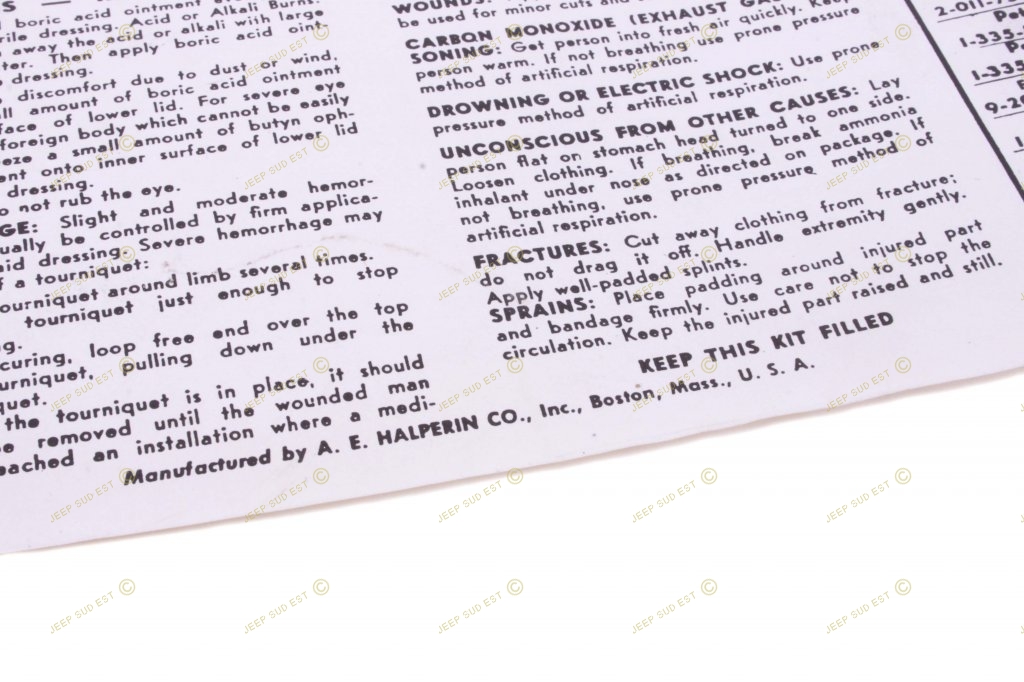 S —
boric acid ointment
rile dressing. Acid or Alkali Burns.
away the acid or alkali with large
ter. Then apply boric acid oint-
dressing.
discomfort due to dust or wind,
all amount of boric acid ointment
face of lower lid. For severe eye
foreign body which cannot be easily
eze a small amount of butyn oph-
ent onto inner surface of lower lid
dressing.
o not rub the eye.
GE: Slight and moderate hemor-
ually be controlled by firm applica-
id dressing. Severe hemorrhage may
f a tourniquet:
ourniquet around limb several times.
tourniquet just enough to stop
g.
curing, loop free end over the top
urniquet, pulling down under the
quet.
the tourniquet is in place, it should
e removed until the wounded man
eached an installation where a medi-
WOUNDS:
be used for minor cuts and
CARBON MONOXIDE (EXHAUST GAS
SONING: Get person into fresh air quickly. Keep
person warm. If not breathing use prone pressure
method of artificial respiration.
DROWNING OR ELECTRIC SHOCK: Use prone
pressure method of artificial respiration.
UNCONSCIOUS FROM OTHER CAUSES: Lay
person flat on stomach head turned to one side.
Loosen clothing. If breathing, break ammonia
inhalant under nose as directed on package. If
not breathing, use prone pressure method of
artificial respiration.
FRACTURES: Cut away clothing from fracture;
do not drag it off. Handle extremity gently.
Apply well-padded splints.
SPRAINS: Place padding around injured part
and bandage firmly. Use care not to stop the
circulation. Keep the injured part raised and still.
KEEP THIS KIT FILLED
Manufactured by A. E. HALPERIN CO., Inc., Boston, Mass., U. S. A.
2-011-7
Pet
1-335-
Pa
1-335
9-2
1
JEEP SUD EST ©